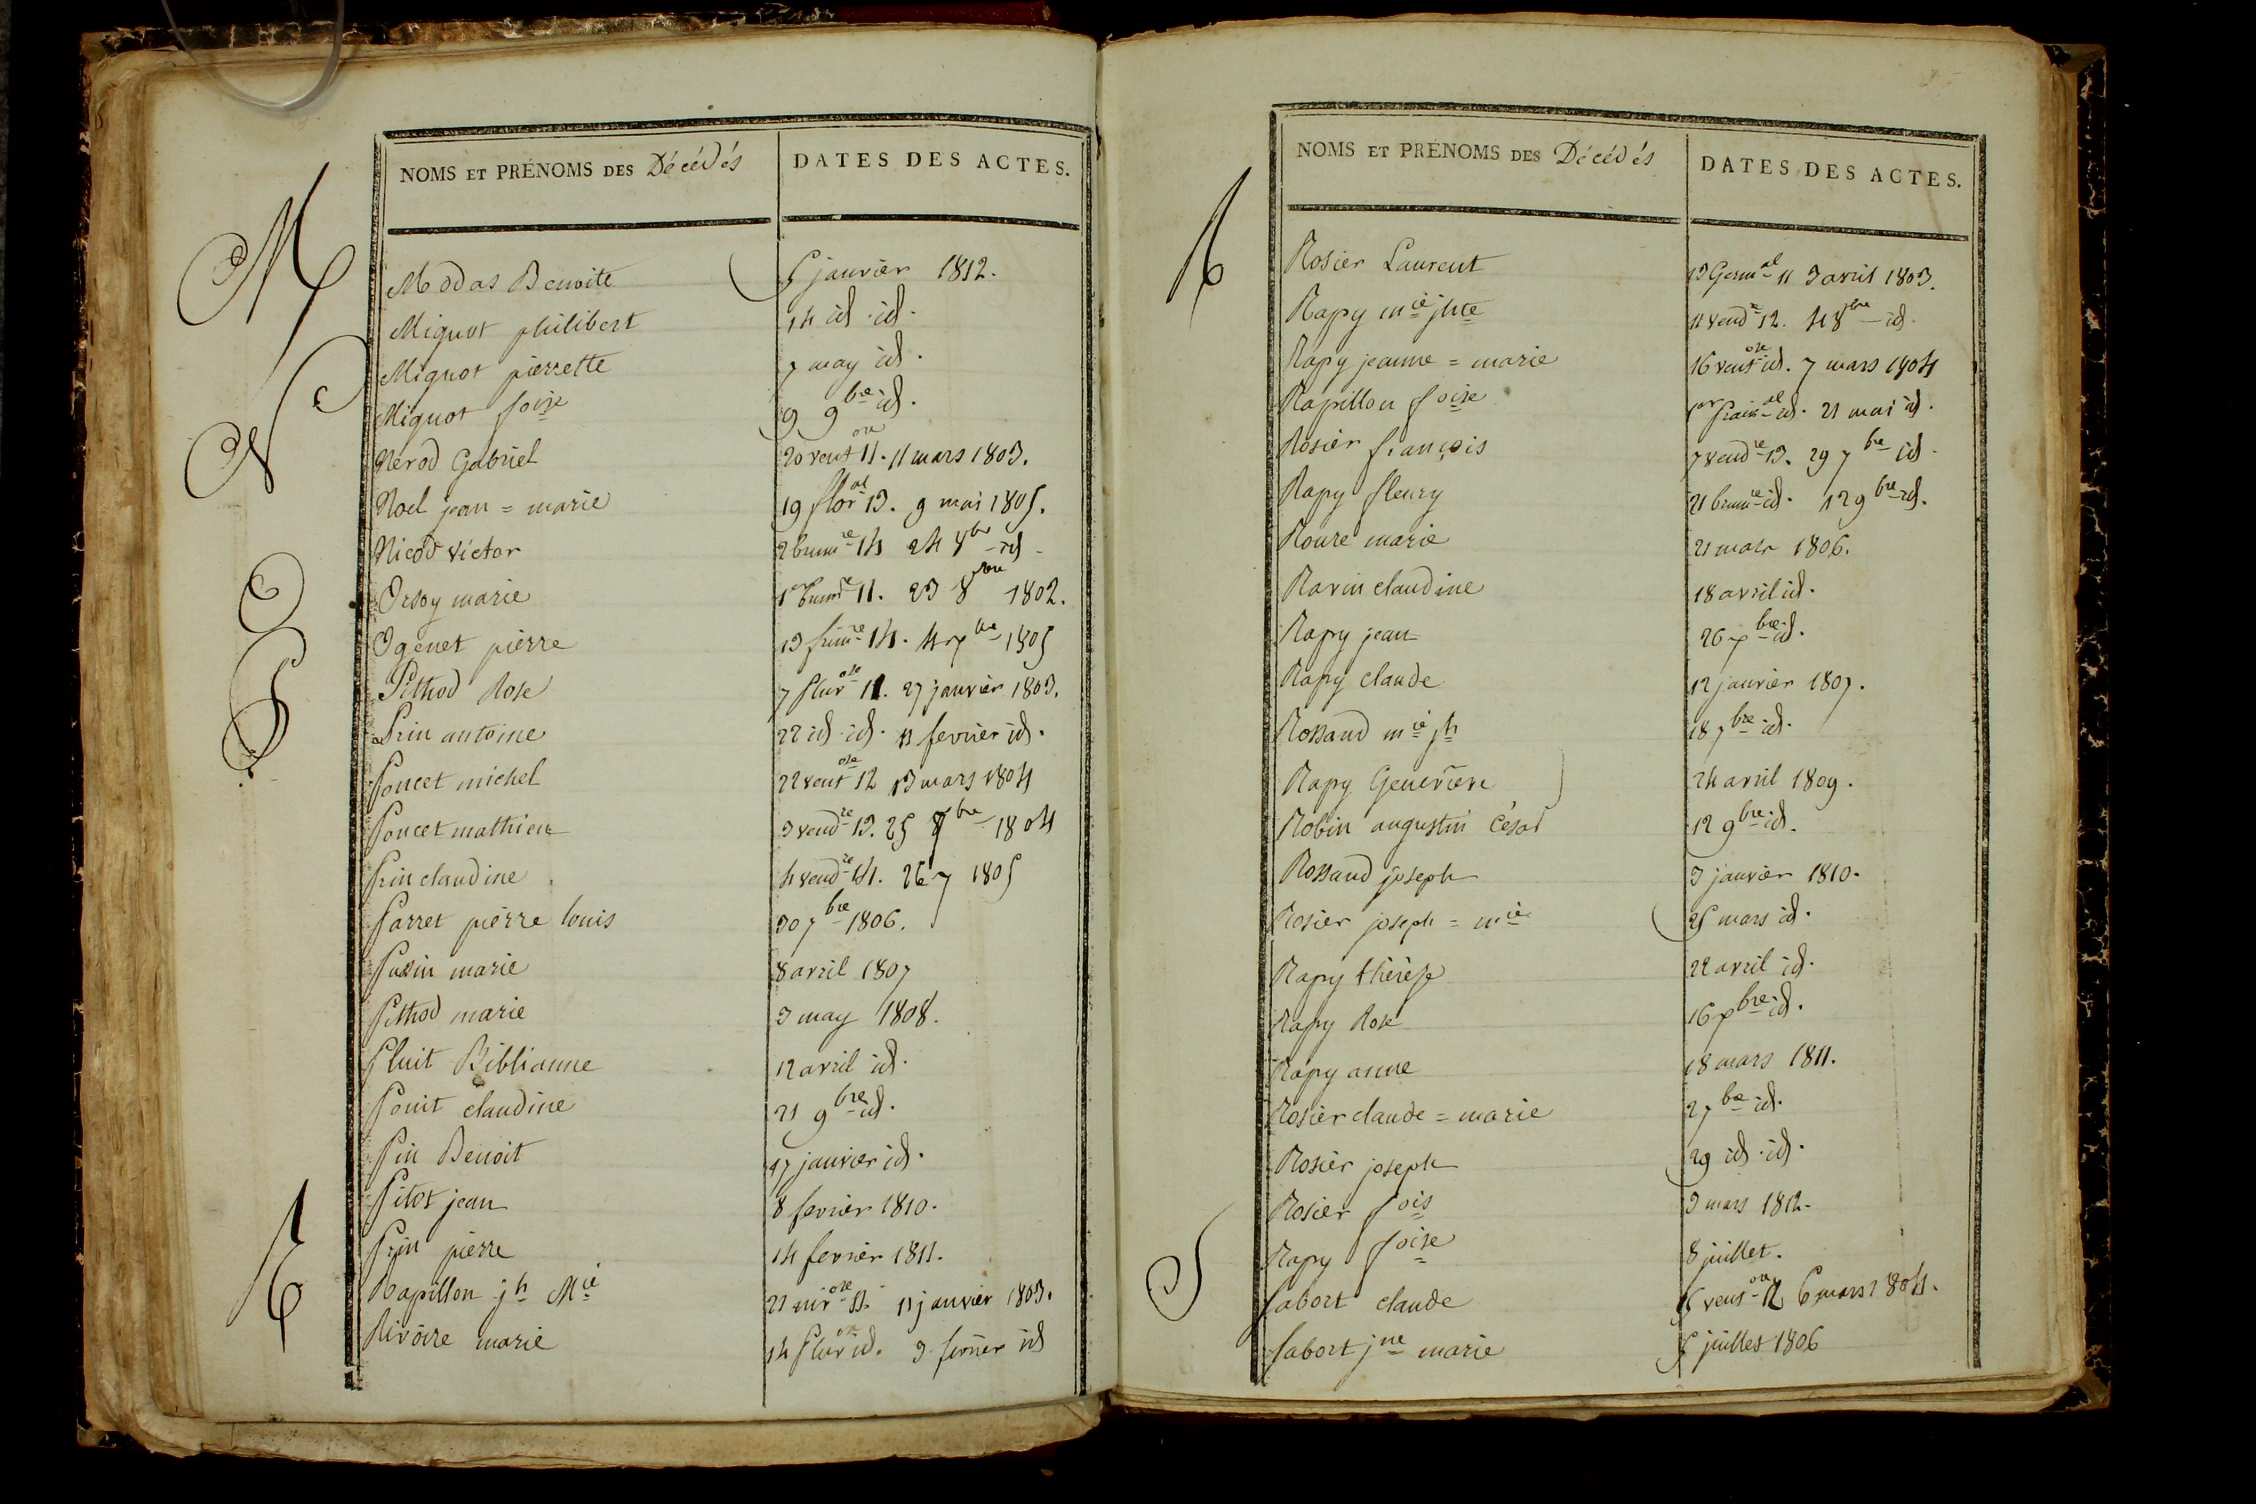 NOMS ET PRÉNOMS DES Décédés DATES DES ACTES.
M
Moddas Benoite 5 janvier 1812.
Miguot philibert 14 id. id.
Miguot pierrette 7 may id.
Miguot foise 9 9bre id.
N
Nerod Gabriel 20 ventose 11. 11 mars 1803.
Noel jean = marie 19 floral 13. 9 mai 1805.
Nicod victor 2 brumre 14 24 8bre id.
O
Orsoy marie 1er brumre 11. 23 8bre 1802.
Ogenet pierre 13 frimre 14. 4 xbre 1805
P
Pithod Rose 7 pluvose 11. 27 janvier 1803.
Prin antoine 22 id. id. 11 fevrier id.
Poncet michel 22 ventose 12 13 mars 1804
Poncet mathieu 3 vendre 13. 25 7bre 1804
Prin claudine 4 vendre 14. 26 7 1805
Parret pierre louis 30 7bre 1806.
marie 8 avril 1807
Pithod marie 3 may 1808.
Pluit Biblianne 12 avril id.
Ponit claudine 21 9bre id.
Pin Benoit 17 janvier id.
Pitot jean 8 fevrier 1810.
Prin pierre 14 fevrier 1811.
R
Rapillon jh Mie 21 nivose 11. 11 janvier 1803.
Rivoire marie 14 pluvose id. 3 fevrier id
NOMS ET PRÉNOMS DES Décédés DATES DES ACTES.
R
Rosier Laurent 13 Germal 11 3 avril 1803.
Rapy mie jhte 11 vendre 12. 4 8bre id.
Rapy jeanne = marie 16 ventose id. 7 mars 1804
Rapillon foise 1er prairal id. 21 mai id.
Rosier françois 7 vendre 13. 29 7bre id.
Rapy fleury 21 brumre id. 12 9bre id.
Roure marie 21 mars 1806.
Ravin claudine 18 avril id.
Rapy jean 26 xbre id.
Rapy claude 12 janvier 1807.
Rossand mie jh 18 7bre id.
Rapy Genevieve 24 avril 1809.
Robin augustin César 12 9bre id.
Rossand joseph 3 janvier 1810.
Rosier joseph = mie 25 mars id.
Rapy thérèse 22 avril id.
Rapy Rose 16 xbre id.
Rapy anne 18 mars 1811.
Rosier claude = marie 2 7bre id.
Rosier joseph 29 id. id.
Rosier fois 3 mars 1812.
Rapy foise 8 juillet.
S
Sabort claude 15 ventose 12 6 mars 1804.
Sabort jne marie 5 juillet 1806